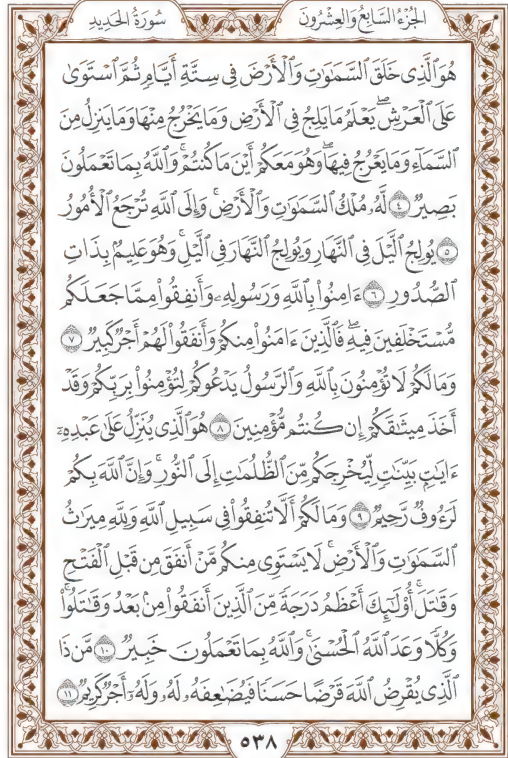 الجُزْءُ السَّابِعُ وَالعِشْرُونَ
سُورَةُ الحَدِيدِ
هُوَ ٱلَّذِي خَلَقَ ٱلسَّمَٰوَٰتِ وَٱلْأَرْضَ فِي سِتَّةِ أَيَّامٖ ثُمَّ ٱسْتَوَىٰ
عَلَى ٱلْعَرْشِۖ يَعْلَمُ مَا يَلِجُ فِي ٱلْأَرْضِ وَمَا يَخْرُجُ مِنْهَا وَمَا يَنزِلُ مِنَ
ٱلسَّمَآءِ وَمَا يَعْرُجُ فِيهَاۖ وَهُوَ مَعَكُمْ أَيْنَ مَا كُنتُمْۚ وَٱللَّهُ بِمَا تَعْمَلُونَ
بَصِيرٞ ٤ لَّهُۥ مُلْكُ ٱلسَّمَٰوَٰتِ وَٱلْأَرْضِۚ وَإِلَى ٱللَّهِ تُرْجَعُ ٱلْأُمُورُ
٥ يُولِجُ ٱلَّيْلَ فِي ٱلنَّهَارِ وَيُولِجُ ٱلنَّهَارَ فِي ٱلَّيْلِۚ وَهُوَ عَلِيمُۢ بِذَاتِ
ٱلصُّدُورِ ٦ ءَامِنُوا۟ بِٱللَّهِ وَرَسُولِهِۦ وَأَنفِقُوا۟ مِمَّا جَعَلَكُم
مُّسْتَخْلَفِينَ فِيهِۖ فَٱلَّذِينَ ءَامَنُوا۟ مِنكُمْ وَأَنفَقُوا۟ لَهُمْ أَجْرٞ كَبِيرٞ ٧
وَمَا لَكُمْ لَا تُؤْمِنُونَ بِٱللَّهِ وَٱلرَّسُولُ يَدْعُوكُمْ لِتُؤْمِنُوا۟ بِرَبِّكُمْ وَقَدْ
أَخَذَ مِيثَٰقَكُمْ إِن كُنتُم مُّؤْمِنِينَ ٨ هُوَ ٱلَّذِي يُنَزِّلُ عَلَىٰ عَبْدِهِۦٓ
ءَايَٰتِۭ بَيِّنَٰتٖ لِّيُخْرِجَكُم مِّنَ ٱلظُّلُمَٰتِ إِلَى ٱلنُّورِۚ وَإِنَّ ٱللَّهَ بِكُمْ
لَرَءُوفٞ رَّحِيمٞ ٩ وَمَا لَكُمْ أَلَّا تُنفِقُوا۟ فِي سَبِيلِ ٱللَّهِ وَلِلَّهِ مِيرَٰثُ
ٱلسَّمَٰوَٰتِ وَٱلْأَرْضِۚ لَا يَسْتَوِي مِنكُم مَّنْ أَنفَقَ مِن قَبْلِ ٱلْفَتْحِ
وَقَٰتَلَۚ أُو۟لَٰٓئِكَ أَعْظَمُ دَرَجَةٗ مِّنَ ٱلَّذِينَ أَنفَقُوا۟ مِنۢ بَعْدُ وَقَٰتَلُوا۟ۚ
وَكُلّٗا وَعَدَ ٱللَّهُ ٱلْحُسْنَىٰۚ وَٱللَّهُ بِمَا تَعْمَلُونَ خَبِيرٞ ١٠ مَّن ذَا
ٱلَّذِي يُقْرِضُ ٱللَّهَ قَرْضًا حَسَنٗا فَيُضَٰعِفَهُۥ لَهُۥ وَلَهُۥٓ أَجْرٞ كَرِيمٞ ١١
٥٣٨